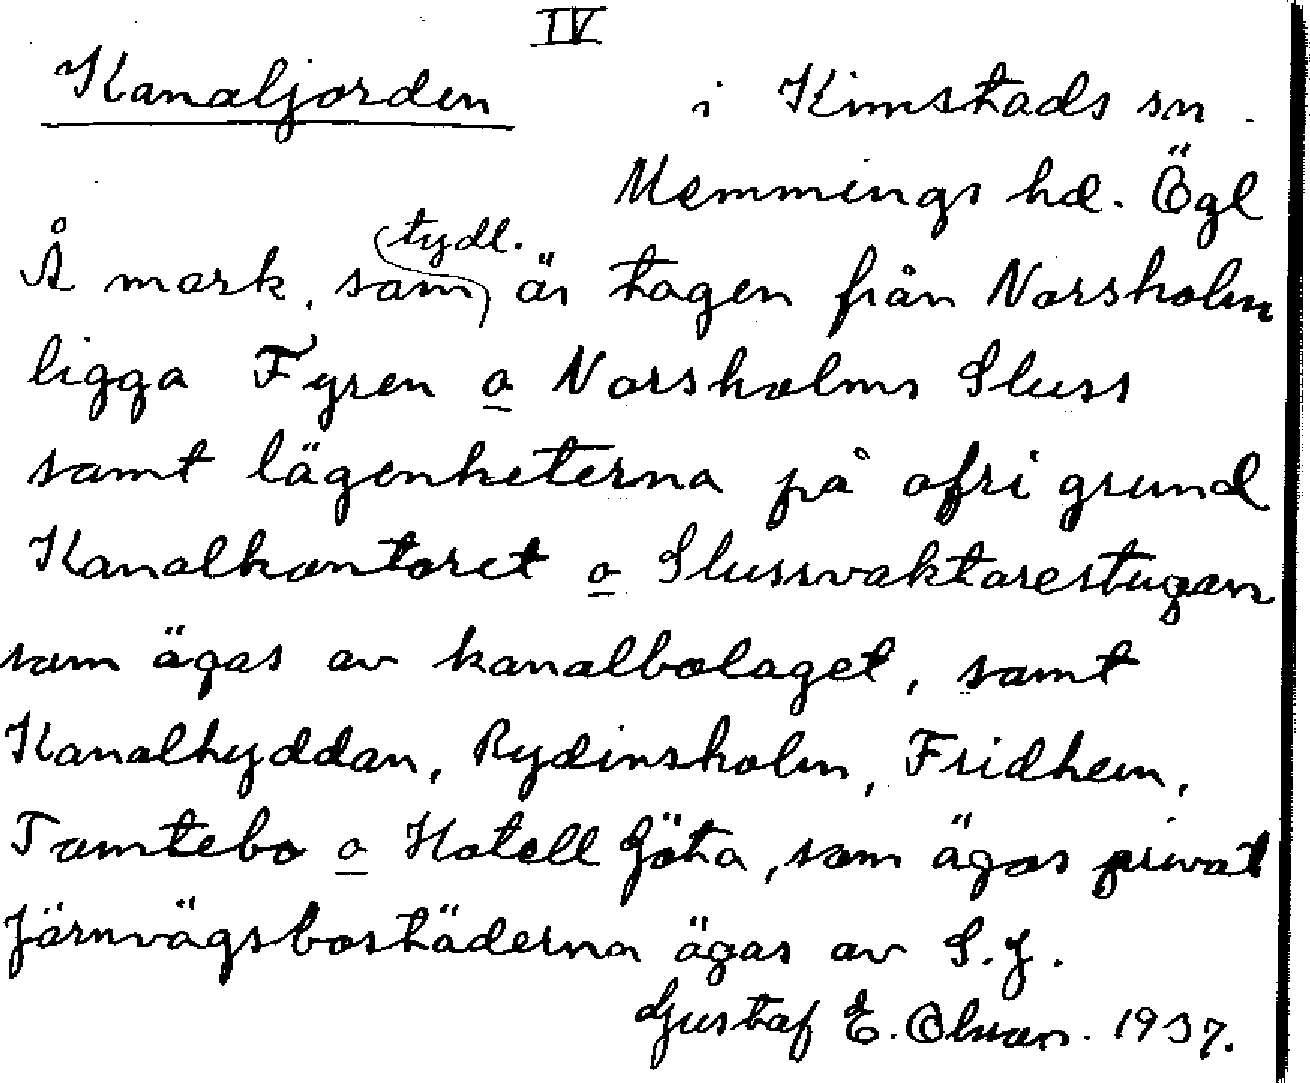 IV
Kanaljorden i Kimstads sn
Memmings hd. Ögl
Å mark, som tydl. är tagen från Norsholm
ligga Fyren o Norsholms Sluss
samt lägenheterna på ofri grund
Kanalkontoret o Slussvaktarestugan
som ägas av kanalbolaget, samt
Kanalhyddan, Rydinsholm, Fridhem,
Tomtebo o Hotell Göta, som ägas privat
Järnvägsbostäderna ägas av S.J.
Gustaf E. Olsson. 1937.